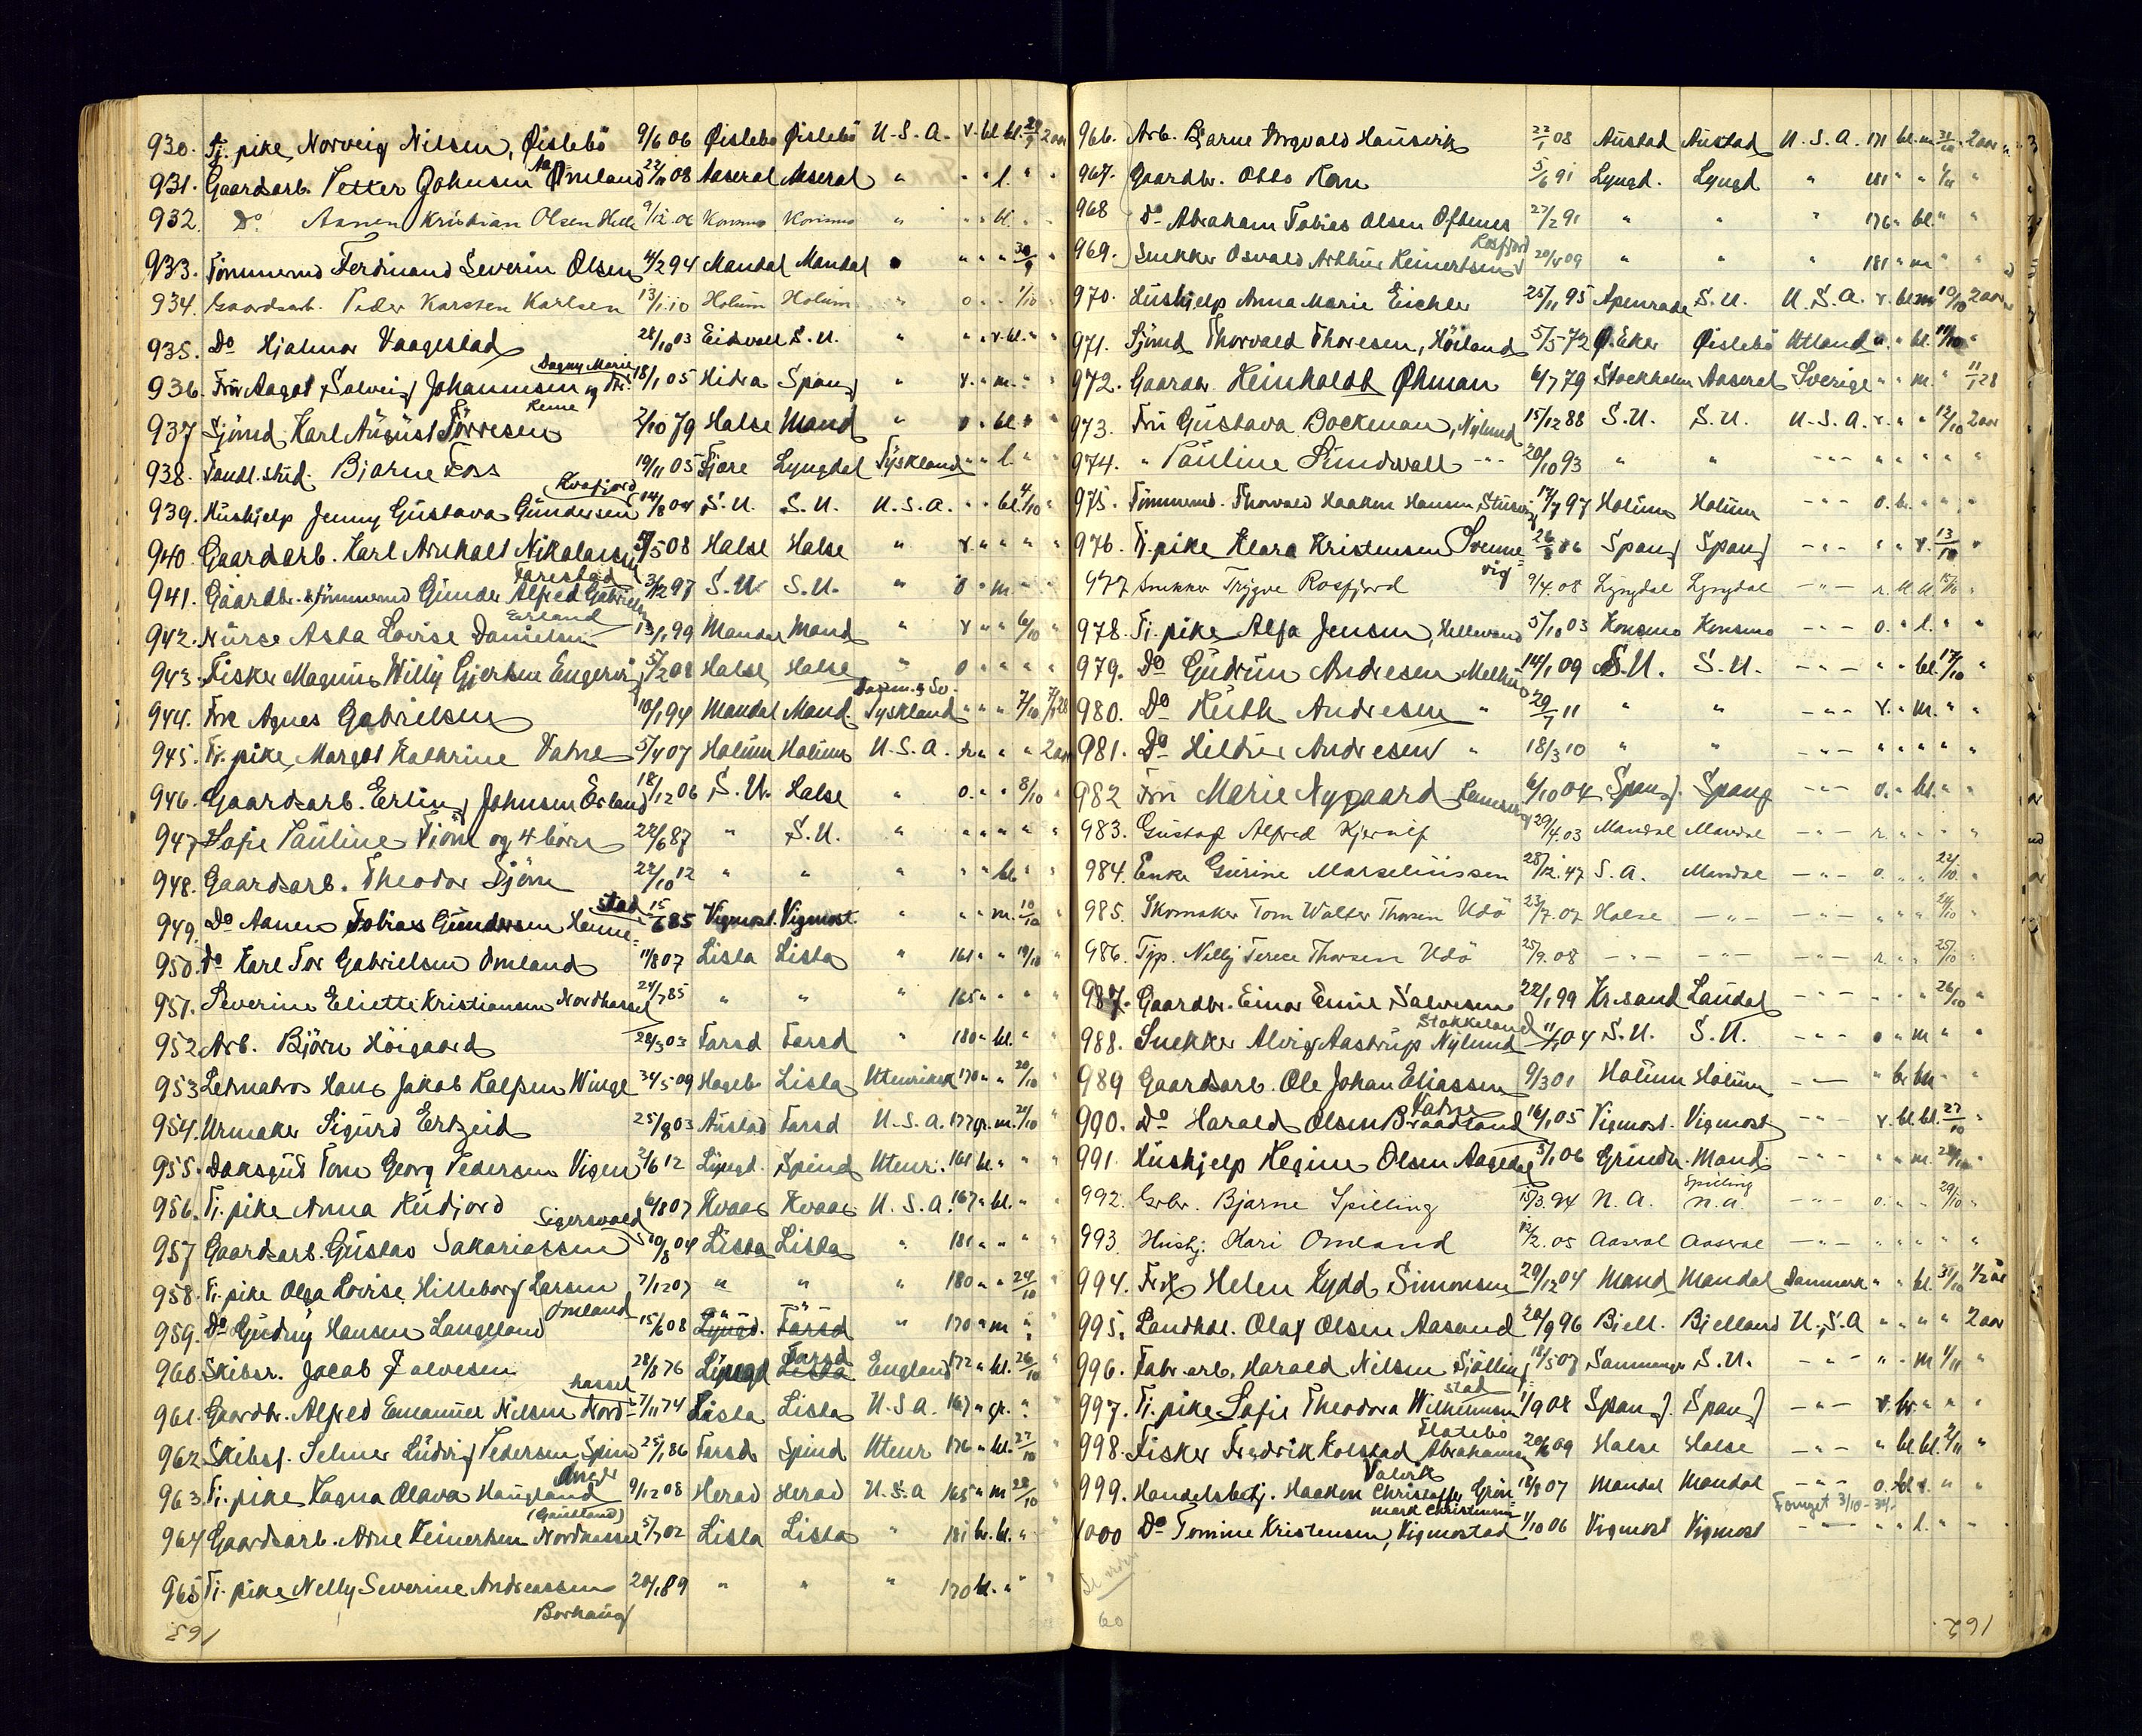 930. Tj. pike Norveig Nilsen, Øislebö 9/6 06 Øislebö Øislebö U.S.A. r. bl. bl. 29/9 2 aar
931. Gaardsarb. Petter Johnsen Omland 22/11 08 Aaseral Aaseral " " " l. " "
932. Do Aanen Kristian Olsen Helle 9/12.06 Konsmo Konsmo " " " bl. " "
933. Tømmermd Ferdinand Severin Olsen 14/2 94 Mandal Mandal " " " " 30/9 "
934. Gaardsarb. Peder Karsten Karlsen 13/1.10 Holum Holum " o. " " 1/10 "
935. Do Hjalmar Vaagestad 28/10 03 Eidsvoll S.U. " " " r.bl. " "
936. Fru Aagot Solveig Johannesen og Dagny Marie 18/1 05 Hidra Spang " r. " m. " "
937 Sjømd. Karl August Törresen 2/10 79 Halse Mand " o " bl. " "
938. Tandl. stud. Bjarne Foss 19/11 05 Fjære Lyngdal Tyskland " " l. " "
939. Hushjelp Jenny Gustava Gundersen Kvafjord 14/8 04 S.U. S.U. U.S.A. " " bl. 4/10 "
940. Gaardsarb. Karl Arnholt Nikolaisen 5/5 08 Halse Halse " r. " " " "
941. Gaardbr. & tømmermd Gunder Alfred Gabrielsen Tarestad 3/12 97 S.U. S.U. " o " m " "
942. Nurse Asta Lovise Danielsen Erland 13/1 99 Mandal Mand " r " " 6/10 "
943. Fisker Magnus Willy Gjertsen Engervig 5/2 08 Halse Halse " o " " " "
944. Fru Agnes Gabrielsen 10/1 94 Mandal Mand. Danm. & Sv. Tyskland " " " 7/10 7/1 28
945. Tj. pike, Margot Kathrine Vatne 5/4 07 Holum Holum U.S.A. r. " " " 2 aar
946. Gaardsarb. Erling Johnsen Erland 18/12 06 S.U. Halse " o. " " 8/10 "
947 Sofie Pauline Tjöm og 4 börn 22/6 87 " S.U. " " " " " "
948. Gaardsarb. Theodor Tjöm 22/10 12 " " " " " bl. " "
949. Do Aanen Tobias Gundersen Hennestad 15/6 85 Vigmost. Vigmost. " " " m. 10/10 "
950. Do Karl Tor Gabrielsen Omland 11/8 07 Lista Lista " 161 " " 19/10 "
951. Severine Eliette Kristiansen Nordhassel 24/7 85 " " " 165 " " " "
952 Arb. Björn Höigaard 28/3 03 Farsd Farsd " 180 " bl. " "
953 Letmatros Hans Jakob Kalfsen Winge 31/5 09 Hageb. Lista Utenriksk 170 " " 20/10 "
954. Urmaker Sigurd Ertzeid 25/8 03 Austad Farsd U.S.A. 177 gr. m. 21/10 "
955. Daksgut Tom Georg Pedersen Vigen 2/6 12 Lyngd. Spind Utenr. 161 bl " " "
956. Tj. pike Anna Rudjord 6/8 07 Kvaas Kvaas U.S.A. 167 " bl. " "
957 Gaardsarb. Gustav Sakariassen Sigersvold 30/8 04 Lista Lista " 181 " " " "
958. Tj. pike Olga Lovise Hilleborg Larsen Omland 7/12 07 " " " 180 " " 24/10 "
959. Do Gudny Hansen Langeland 15/6 08 Lyngd. Farsd " 170 " m " "
960. Skibsr. Jacob Salvesen 28/8 76 Lyngd Farsd Lista England 172 " bl. 26/10 "
961. Gaardbr. Alfred Emanuel Nilsen Nordhassel 7/11 74 Lista Lista U.S.A. 167 " gr. " "
962 Skibsf. Selmer Ludvig Pedersen, Spind 25/1 86 Farsd Spind Utenr 176 " bl. 27/10 "
963 Tj. pike Ragna Olava Haugland (Gausland) 9/12 08 Herad Herad U.S.A 165 " m 28/10 "
964 Gaardsarb. Arne Reinertsen Nordhassel 5/7 02 Lista Lista " 181 br. bl. " "
965 Tj. pike Nelly Severine Andreassen Borhaug 20/1 89 " " " 170 bl. " " "
163
966. Arb. Bjarne Ingvald Hausvik 22/1 08 Austad Austad U.S.A. 171 bl. m 31/10 2 aar
967. Gaardbr. Obbo Kom 5/6 91 Lyngd. Lyngd " 181 " " 1/11 "
968 Do Abraham Tobias Olsen Oftenes 27/2 91 " " " 176 " bl. " "
969. Snekker Osvald Arthur Reinertsen Rosfjord 20/4 09 " " " 181 " m " "
970. Hushjelp Anna Marie Eichler 25/11 95 Apenrade S.U. U.S.A. r. bl. m 10/10 2 aar
971. Sjömd Thorvald Thoresen, Höiland 5/5 72 Ø. Eker Øislebö Utland " " bl. 11/10 "
972. Gaardbr. Reinholdt Öhman 6/7 79 Stockholm Aaseral Sverige " " m. " 11/1 28
973. Fru Gustava Bockman, Nylund 15/12 88 S.U. S.U. U.S.A. r. " " 12/10 2 aar
974. " Pauline Sundwall - " - 20/10 93 " " - " - " " " " "
975. Tømmermd. Thorvald Haaken Hansen, 17/7 97 Holum Holum - " - o. br. " " "
976. Tj. pike Klara Kristensen Svennevig 26/8 06 Spang Spang - " - " " r. 13/10 "
977 Snekker Trygve Rosfjord 9/4.08 Lyngdal Lyngdal - " - r. bl bl. 15/10 "
978. Tj. pike Alfa Jensen, Helleren 5/10 03 Konsmo Konsmo - " - o. " l. " "
979. Do Gudrun Andresen Melhus 14/1 09 S.U. S.U. - " - " " bl. 17/10 "
980. Do Ruth Andresen " 29/1 11 " " - " - r. " m. " "
981. Do Hildur Andresen " 18/3 10 " " - " - " " " " "
982 Fru Marie Nygaard 6/10 04 Spang. Spang - " - o. " bl. " "
983. Gustaf Alfred Kjernif 29/4.03 Mandal Mandal - " - r. " " " "
984. Enke Gurine Marseliussen 28/12.47 S.A. Mandal - " - o. " " 22/10. "
985. Skomaker Tom Walter Thorsen Udö 23/7.07 Halse - " - - " - " " " 24/10 "
986. Tjp. Nelly Terese Thorsen Udö 25/9.08 - " - - " - - " - r. " " 25/10 "
987. Gaardbr. Einar Emil Salvesen 22/1 99 Kr.sand Laudal - " - " " " 26/10 "
988. Snekker Alvig Aastrup Nylund Stokkeland 11/1 04 S.U. S.U. - " - o " m " "
989 Gaardsarb. Ole Johan Eliassen 9/3 01 Holum Holum - " - " br bl. " "
990. Do Harald Olsen Braadland Vatne 16/1 05 Vigmost. Vigmost - " - r. bl. bl. 27/10 "
991. Hushjelp Regine Olsen Aagedal 5/1 06 Grindh. Mand. - " - " " m. 28/10 "
992. Grbr. Bjarne Spilling 15/3.94 N.A. Spilling N.A. - " - o. " " 29/10 "
993. Hushj. Kari Omland 12/2.05 Aaseral Aaseral - " - " " " " "
994. Frk Helen Kydd Simonsen 29/12 04 Mand Mandal Danmark " " bl. 30/10 1/2 år
995. Landhdl. Olaf Olsen Aasand 20/9 96 Bjell. Bjelland U.S.A " " " " 2 aar
996. Fabr. arb. Harald Nilsen Sjölling 18/5 07 S.U. - " - " " m 1/11 "
997. Tj. pike Sofie Theodora Wilhelmsen stad 1/9 08 Spang. Spang - " - r. br. " " "
998. Fisker Fredrik Kolstad Abrahamsen Flatebö 20/6 09 Halse Halse - " - " bl. bl. 2/11 "
999. Handelsbetj. Haaken Christoffer Grön Valvik 18/8 07 Mandal Mandal - " - o. bl r. " "
1000 Do Tomine Kristensen, Vigmostad 1/10 06 Vigmost Vigmost - " - " " l. " "
60
162.